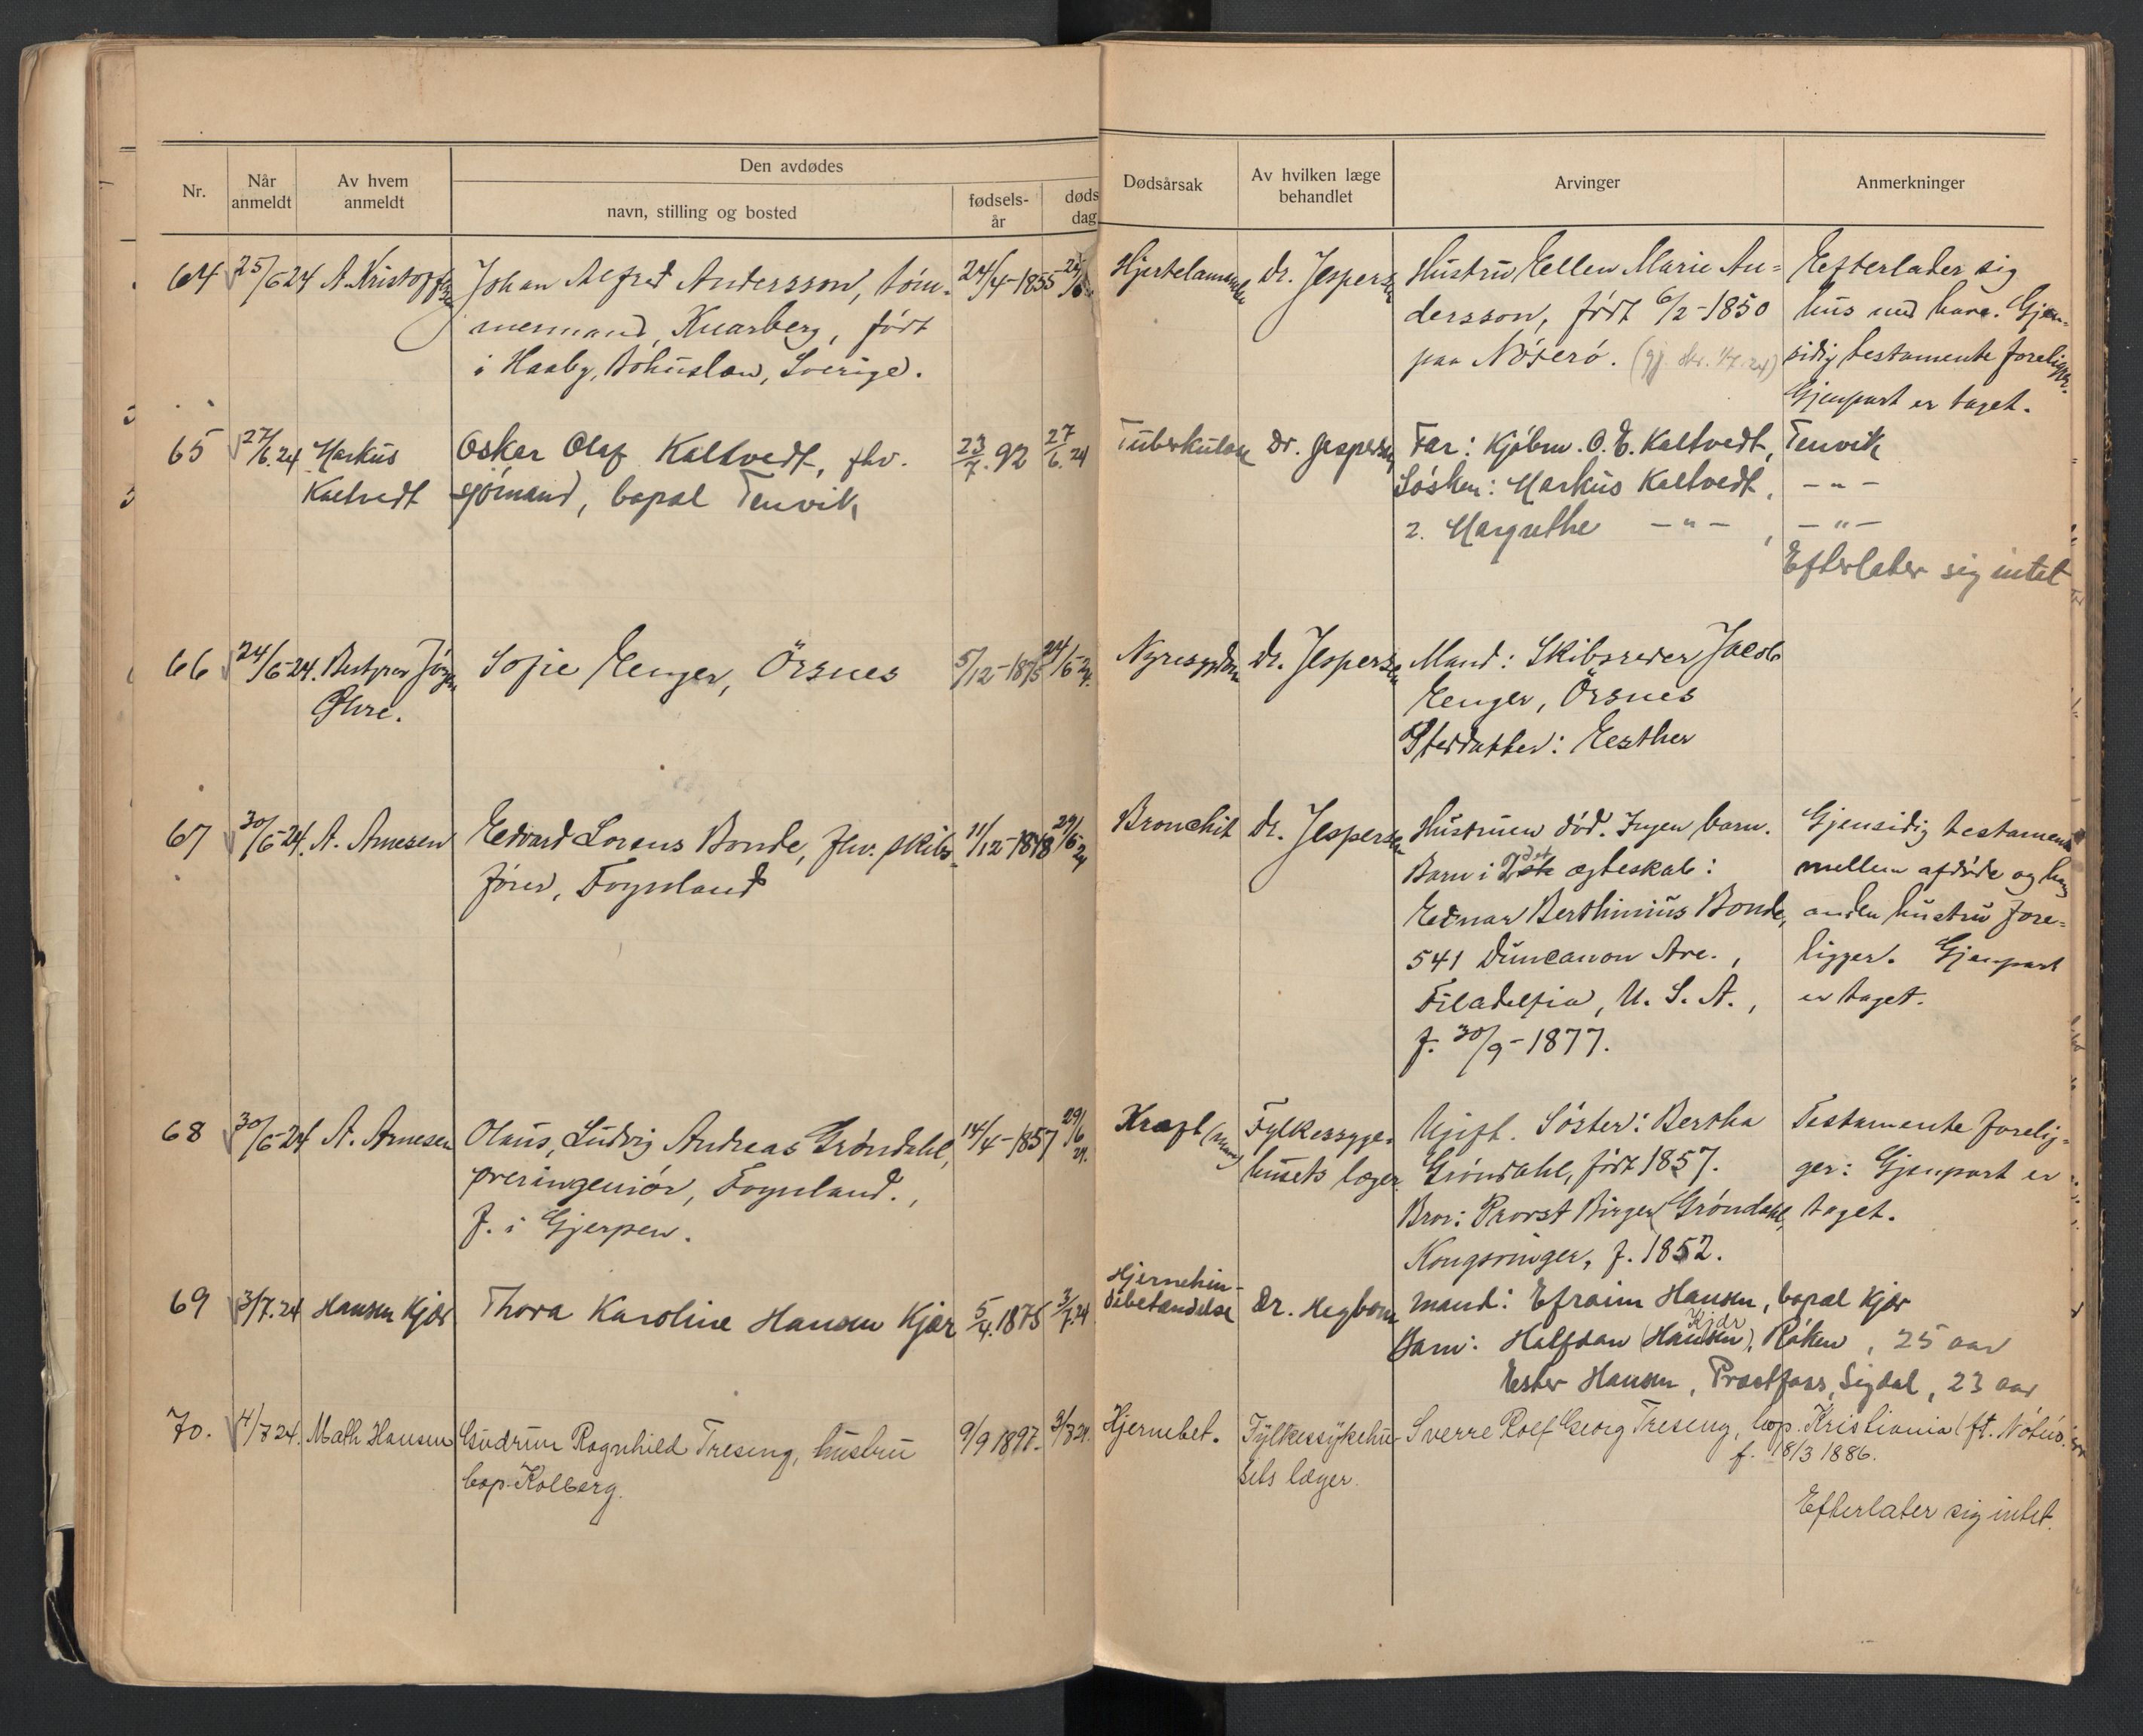 Nr.
Når anmeldt
Av hvem anmeldt
Den avdødes
navn, stilling og bosted
fødsels-år
døds dag
Dødsårsak
Av hvilken læge behandlet
Arvinger
Anmerkninger
64 25/6 24 A. Kristoffersen Johan Alfred Andersson, tøm- 24/4-1855 Dr. Jespersen Hustru Ellen Marie An= Efterlader sig
mermand, Knarberg, født dersson, født 6/2-1850 hus med have. Gjen-
i Haaby, Bohuslæn, Sverige. paa Nøterø. sidig testamente foreligger.
Gjenpart er taget.
65 27/6.24 Markus Oskar Olaf Kaltvedt, fhv. 23/7.92 27/6.24 Tuberkulose Dr. Jespersen Far: Kjøbm. O. E. Kaltvedt, Tenvik
Kaltvedt sjømand, bopal Tenvik, Søsken: Markus Kaltvedt, -"-
2. Margrethe -"- , -"-
Efterlater sig intet
66 24/6-24. Bestyrer Jørgen Sofie Enger, Örsnes 5/12-1875 24/6-24. Nyresygdom Dr. Jespersen Mand: Skibsreder Jacob
Øhre. Enger, Örsnes
Steddatter: Esther
67 30/6-24. A. Arnesen Edvard Lorens Bonde, fhv. skibs- 11/12-1848 29/6 24 Bronchit Dr. Jespersen Hustruen død. Ingen barn. Gjensidig testament
fører, Føynland Barn i ægteskab: mellem afdøde og hans
Edmar Berthinius Bonde, anden hustru fore=
541 Duncanon Ave., ligger. Gjenpart
Filadelfia, U. S. A., er taget.
f. 30/9-1877.
68 30/6-24 A. Arnesen Olaus, Ludvig Andreas Grøndahl, 14/4-1857 29/6 24. Kræft Fylkessyge- Ugift. Søster: Bertha Testamente forelig-
overingeniør, Føynland., husets læger. Grøndahl, født 1857. ger: Gjenpart er
f. i Gjerpen. Bror: Provst Birger Grøndahl, taget.
Kongsvinger, f. 1852.
69 3/7.24 Hansen Kjær Thora Karoline Hansen Kjær 5/4.1875 3/7.24 Hjernehin-
debetændelse Dr. Hegbom Mand: Efraim Hansen, bopal Kjær
Barn: Halfdan (Hansen) Kjær, Røken, 25 aar
Ester Hansen, Præstfoss, Sigdal, 23 aar
70. 4/7 24. Math Hansen Gudrun Ragnhild Treseng, hustru 9/9 1897. 3/7 24. Hjernebet. Fylkessykehu- Sverre Rolf Georg Treseng, bop. Kristiania
bop. Kolberg. sets læger. f. 18/3 1886.
Efterlater sig intet.